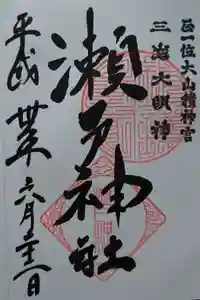 正一位大山積神宮
三嶌大明神
瀬戸神社
平成 六月二十一日